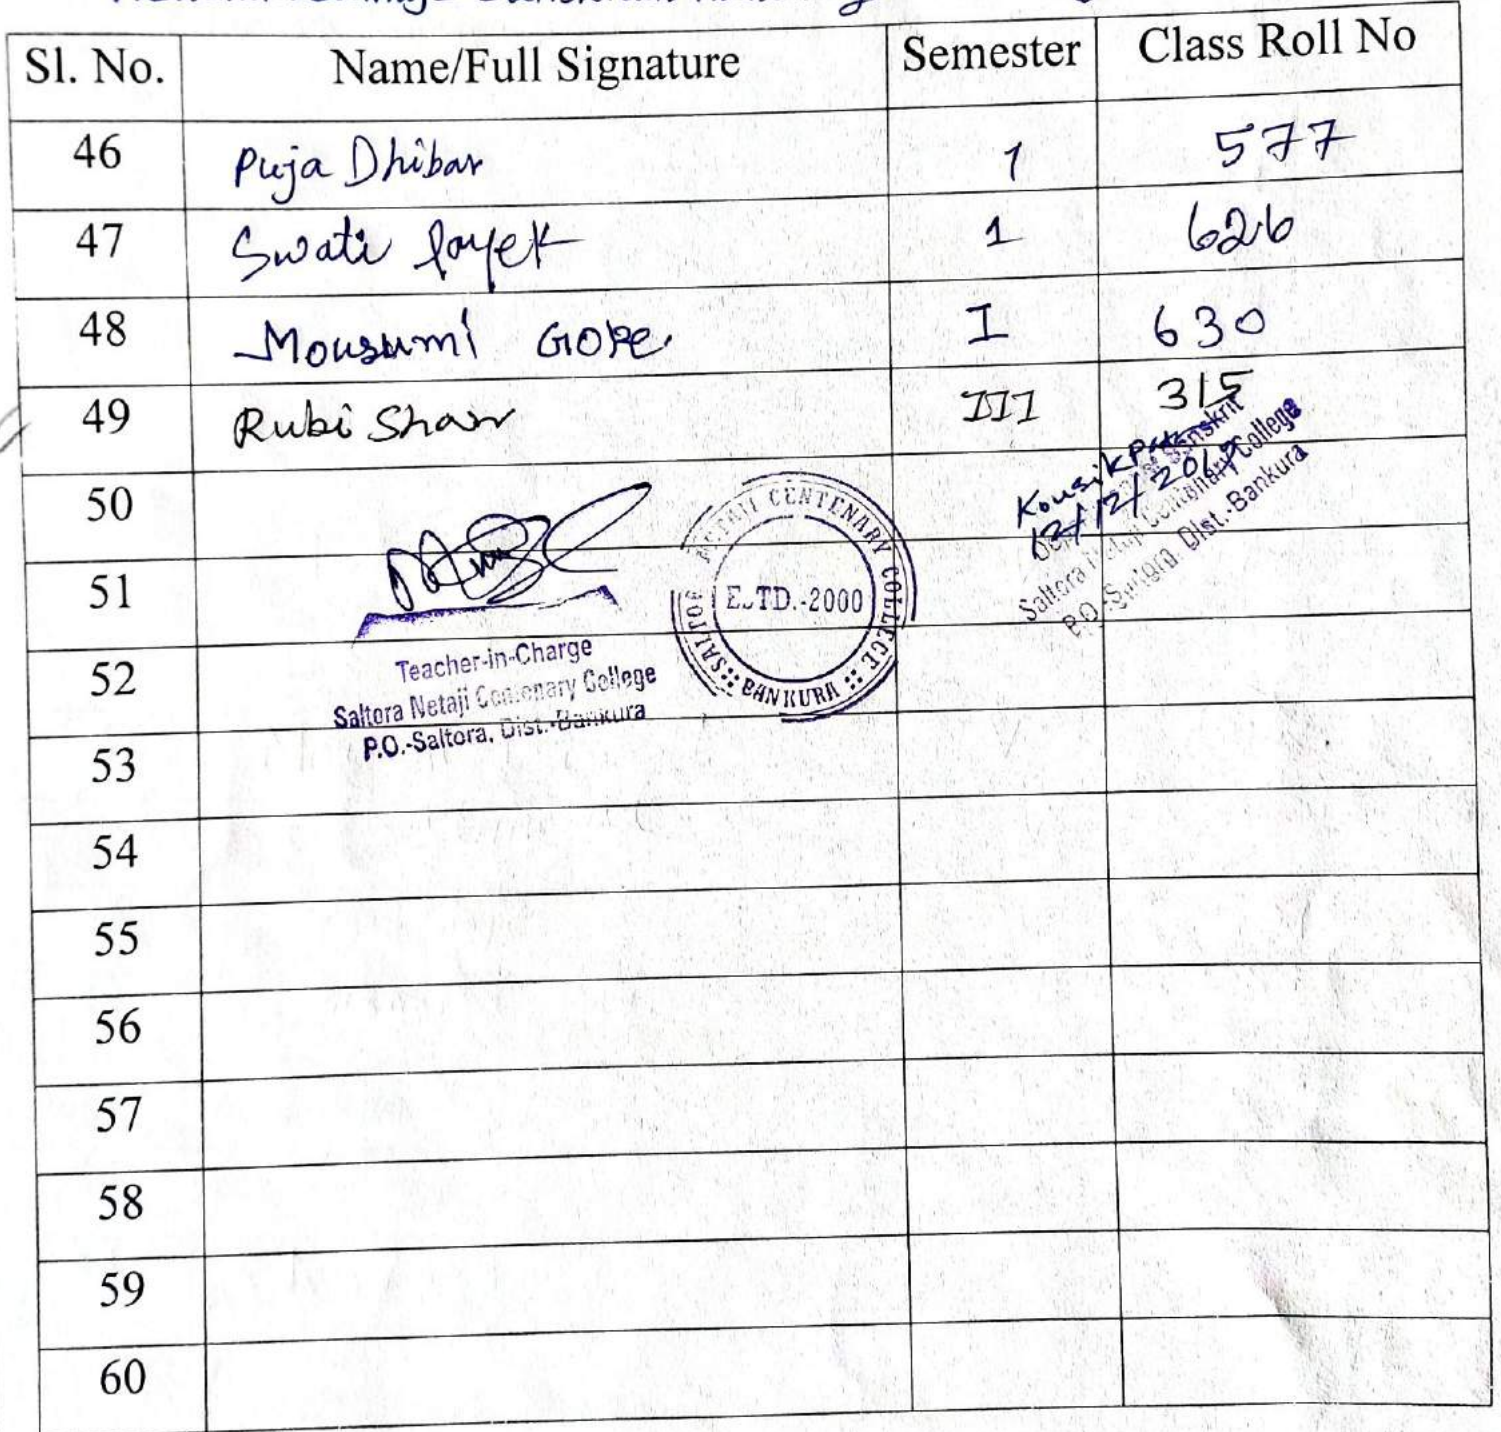 Sl. No. Name/Full Signature Semester Class Roll No
46 Puja Dhibar 1 577
47 Swati Layek 1 626
48 Mousumi GOPE. I 630
49 Rubi Shaw III 315
50
51
52
53
54
55
56
57
58
59
60
Teacher-in-Charge
Saltora Netaji Centenary College
P.O.-Saltora, Dist.-Bankura
NETAJI CENTENARY COLLEGE
BANKURA
ESTD.-2000
Kousik
12/12/2019
Sanskrit
Saltora Netaji Centenary College
P.O.-Saltora, Dist.-Bankura